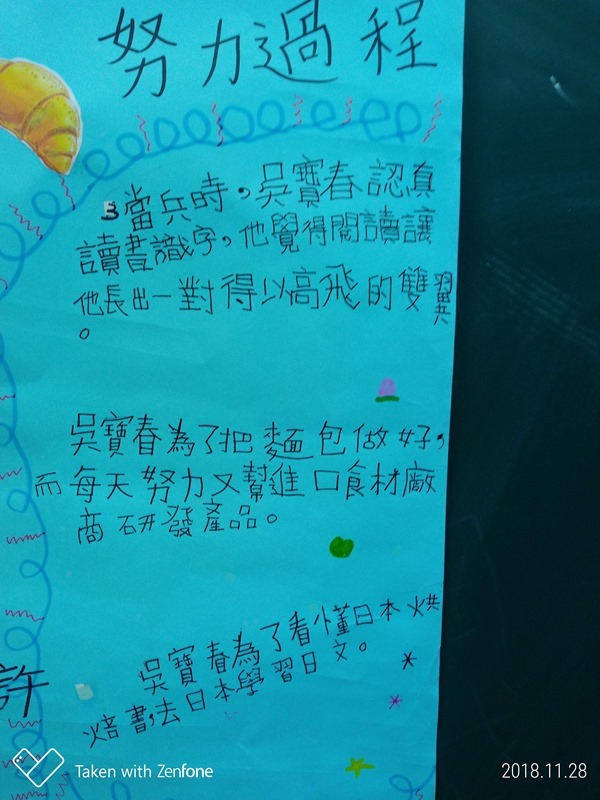 努力過程
當兵時，吳寶春認真
讀書識字，他覺得閱讀讓
他長出一對得以高飛的雙翼
。
吳寶春為了把麵包做好，
而每天努力又幫進口食材廠
商研發產品。
吳寶春為了看懂日本烘
焙書，去日本學習日文。
許
Taken with Zenfone
2018.11.28